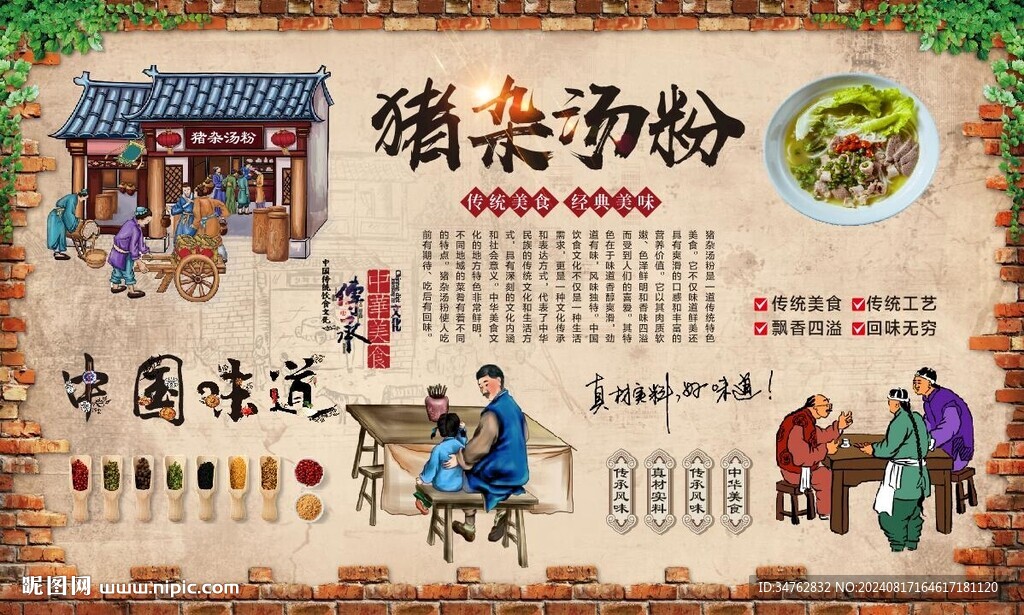 猪杂汤粉
猪杂汤粉
传统美食 经典美味
猪杂汤粉是一道传统特色
美食。它不仅味道鲜美还
具有爽滑的口感和丰富的
营养价值。它以其肉质软
嫩、色泽鲜明和香味四溢
而受到人们的喜爱。其特
色在于味道香醇爽滑，劲
道有味，风味独特。中国
饮食文化不仅是一种生活
需求，更是一种文化传承
和表达方式，代表了中华
民族的传统文化和生活方
式，具有深刻的文化内涵
和社会意义。中华美食文
化的地方特色非常鲜明，
不同地域的菜肴有着不同
的特点。猪杂汤粉使人吃
前有期待、吃后有回味。
文化
中华美食
传承
中国传统饮食文化
传统美食 传统工艺
飘香四溢 回味无穷
中国味道
真材实料,好味道!
传承风味
真材实料
传承风味
中华美食
昵图网 www.nipic.com
ID:34762832 NO:20240817164617181120